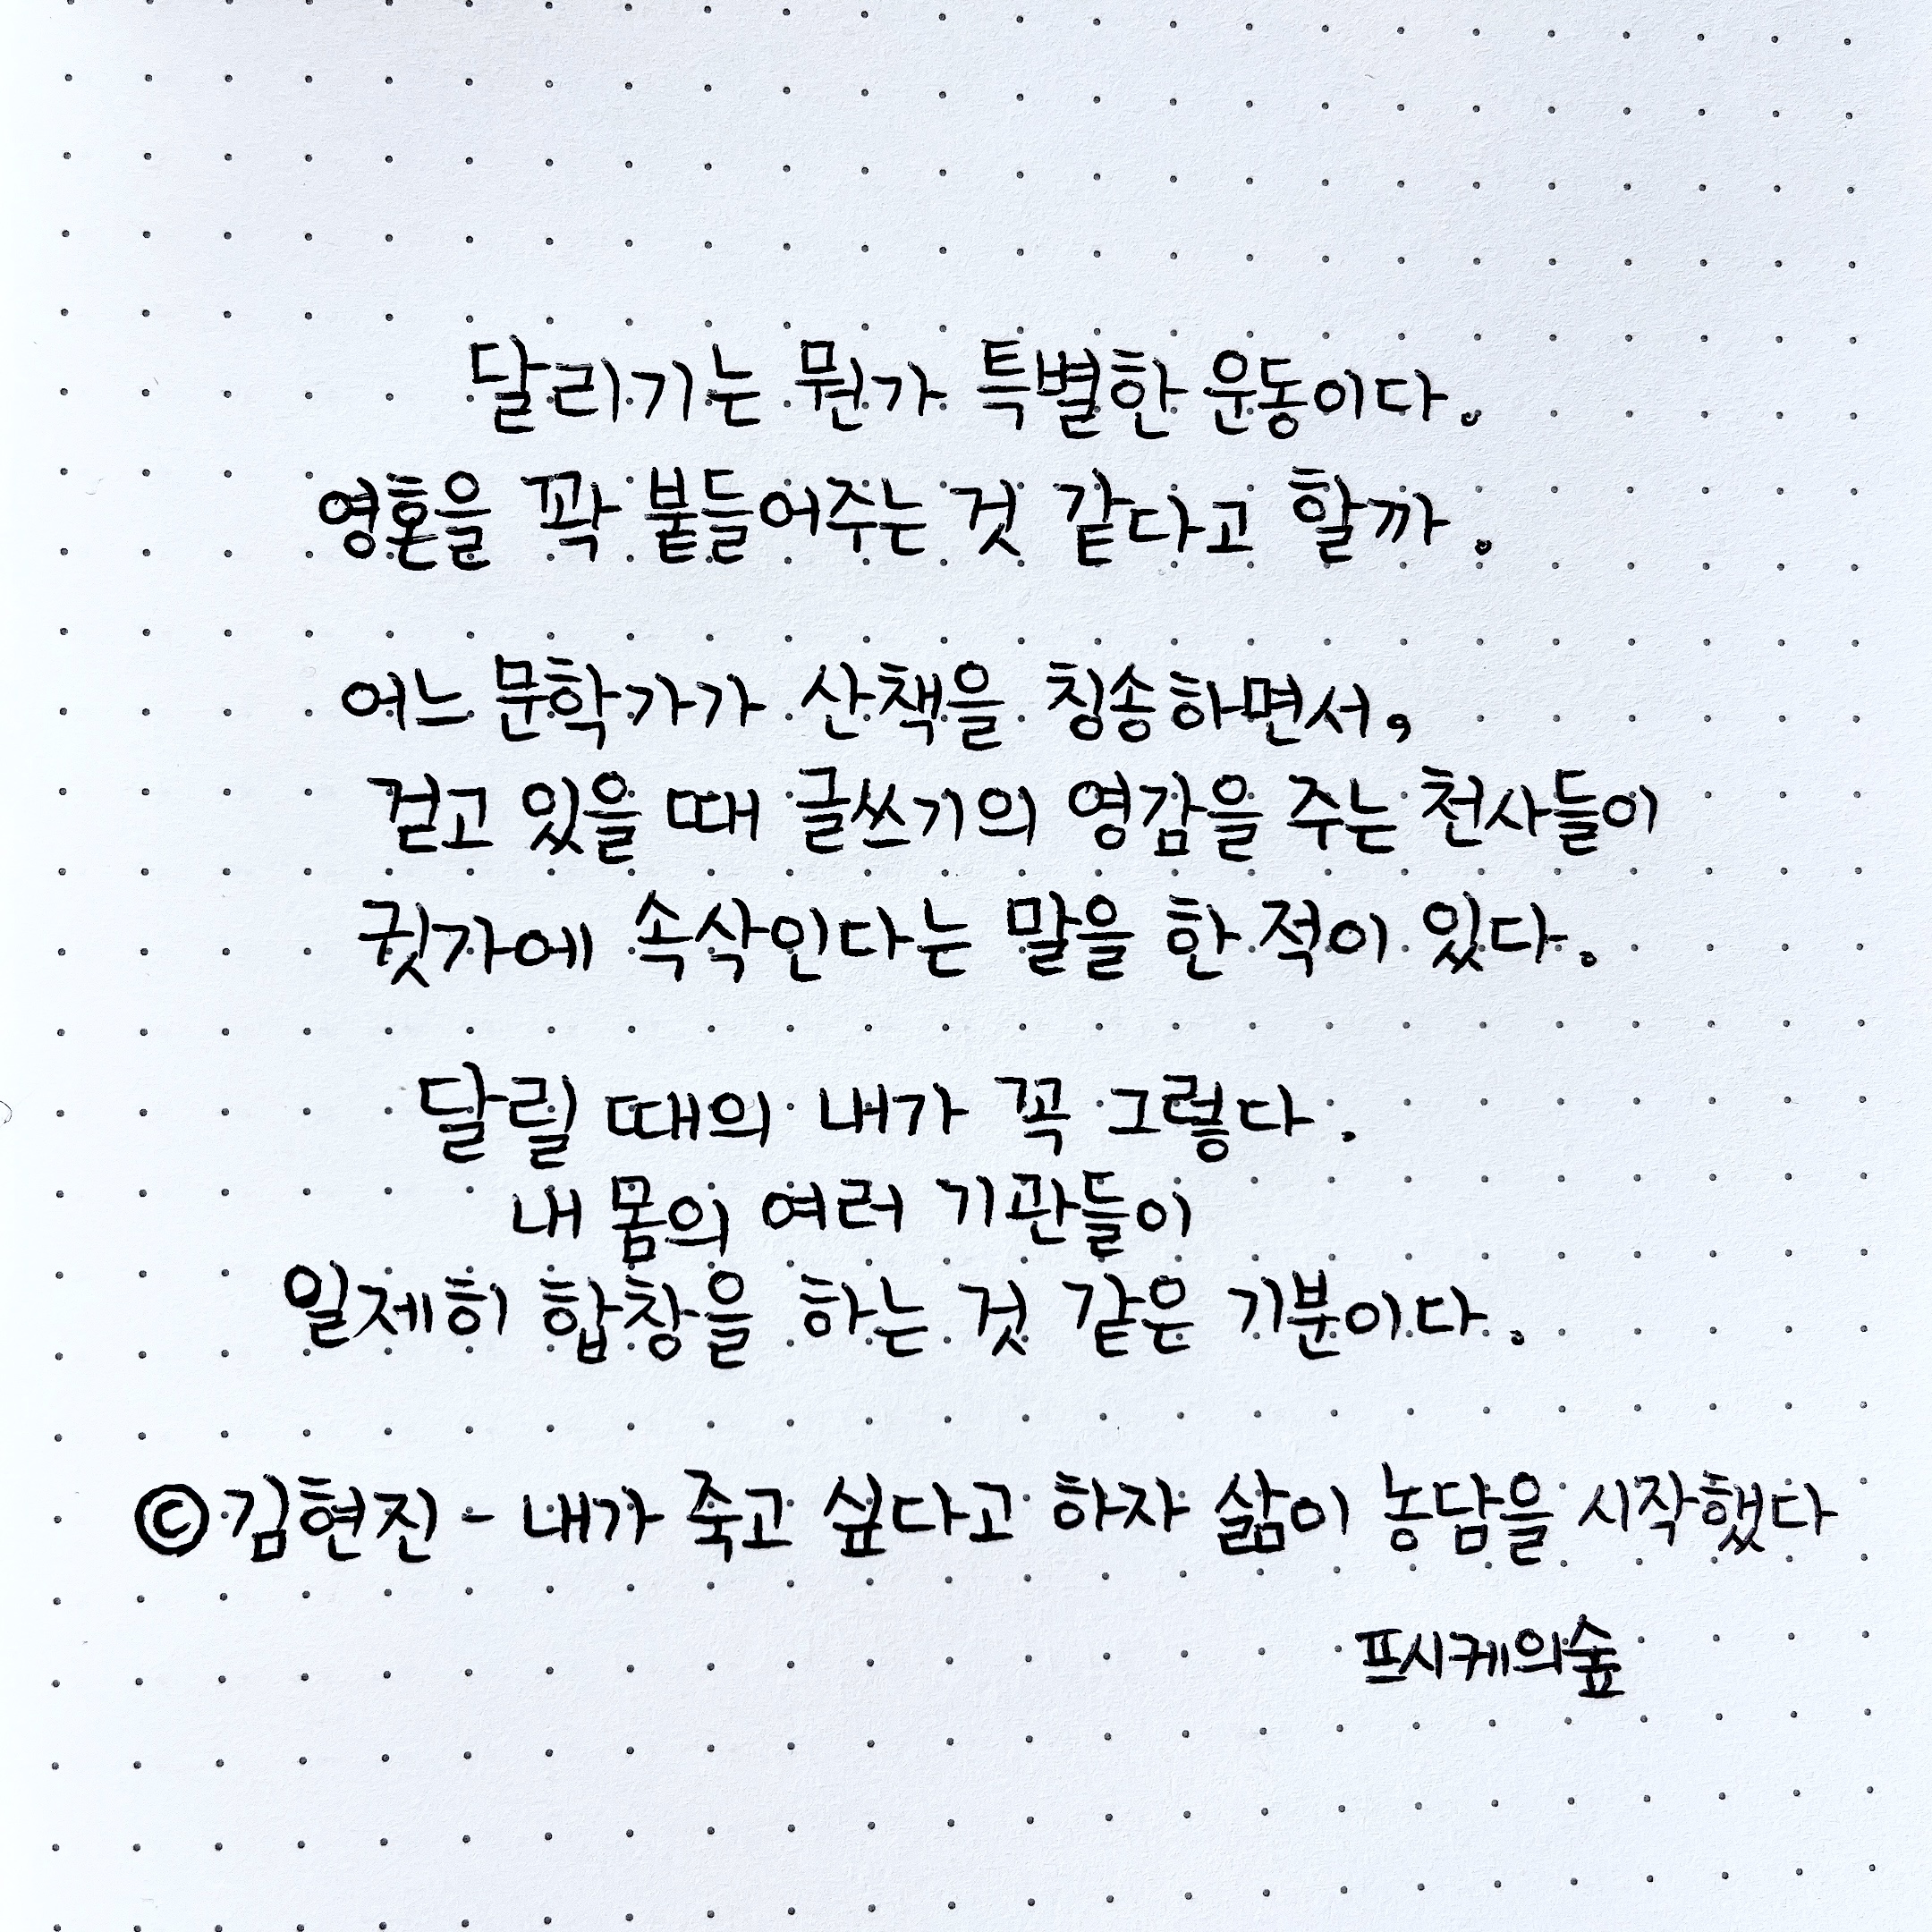 달리기는 뭔가 특별한 운동이다.
영혼을 꽉 붙들어주는 것 같다고 할까.
어느 문학가가 산책을 칭송하면서,
걷고 있을 때 글쓰기의 영감을 주는 천사들이
귓가에 속삭인다는 말을 한 적이 있다.
달릴 때의 내가 꼭 그렇다.
내 몸의 여러 기관들이
일제히 합창을 하는 것 같은 기분이다.
©김현진 - 내가 죽고 싶다고 하자 삶이 농담을 시작했다
프시케의숲